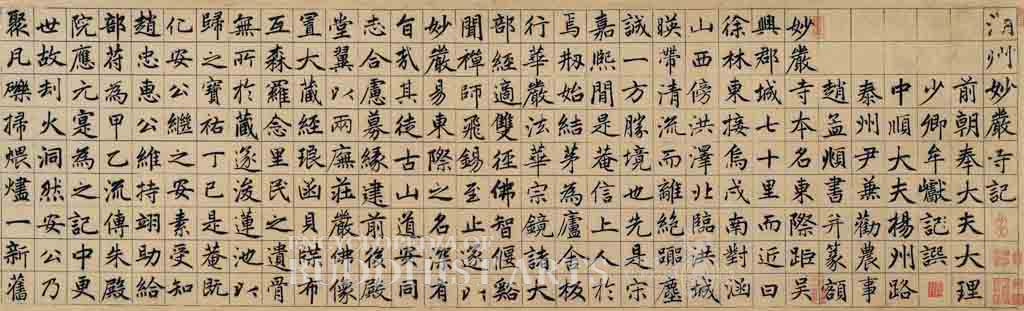 湖州妙嚴寺記
前朝奉大夫大理
少卿牟巘記譔
中順大夫楊州路
泰州尹兼勸農事
趙孟頫書并篆額
妙嚴寺本名東際距吳
興郡城七十里而近曰
徐林東接烏戍南對涵
山西傍洪澤北臨洪城
暎帶清流而離絕囂塵
誠一方勝境也先是宗
嘉熙間是菴信上人於
焉刱始結茅為廬舍板
行華嚴法華宗鏡諸大
部經適雙徑佛智偃谿
聞禪師飛錫至止遂以
妙嚴易東際之名深有
旨哉其徒古山道安同
志合慮募緣建前後殿
堂翼以兩廡莊嚴佛像
置大藏經琅函貝牒布
互森羅念里民之遺骨
無所於藏遂浚蓮池以
歸之寶祐丁巳是菴既
化安公繼之安素受知
趙忠惠公維持翊助給
部符為甲乙流傳朱殿
院應元寔為之記中更
世故劫火洞然安公乃
聚凡礫掃煨燼一新舊
BUDDHIST ARTS